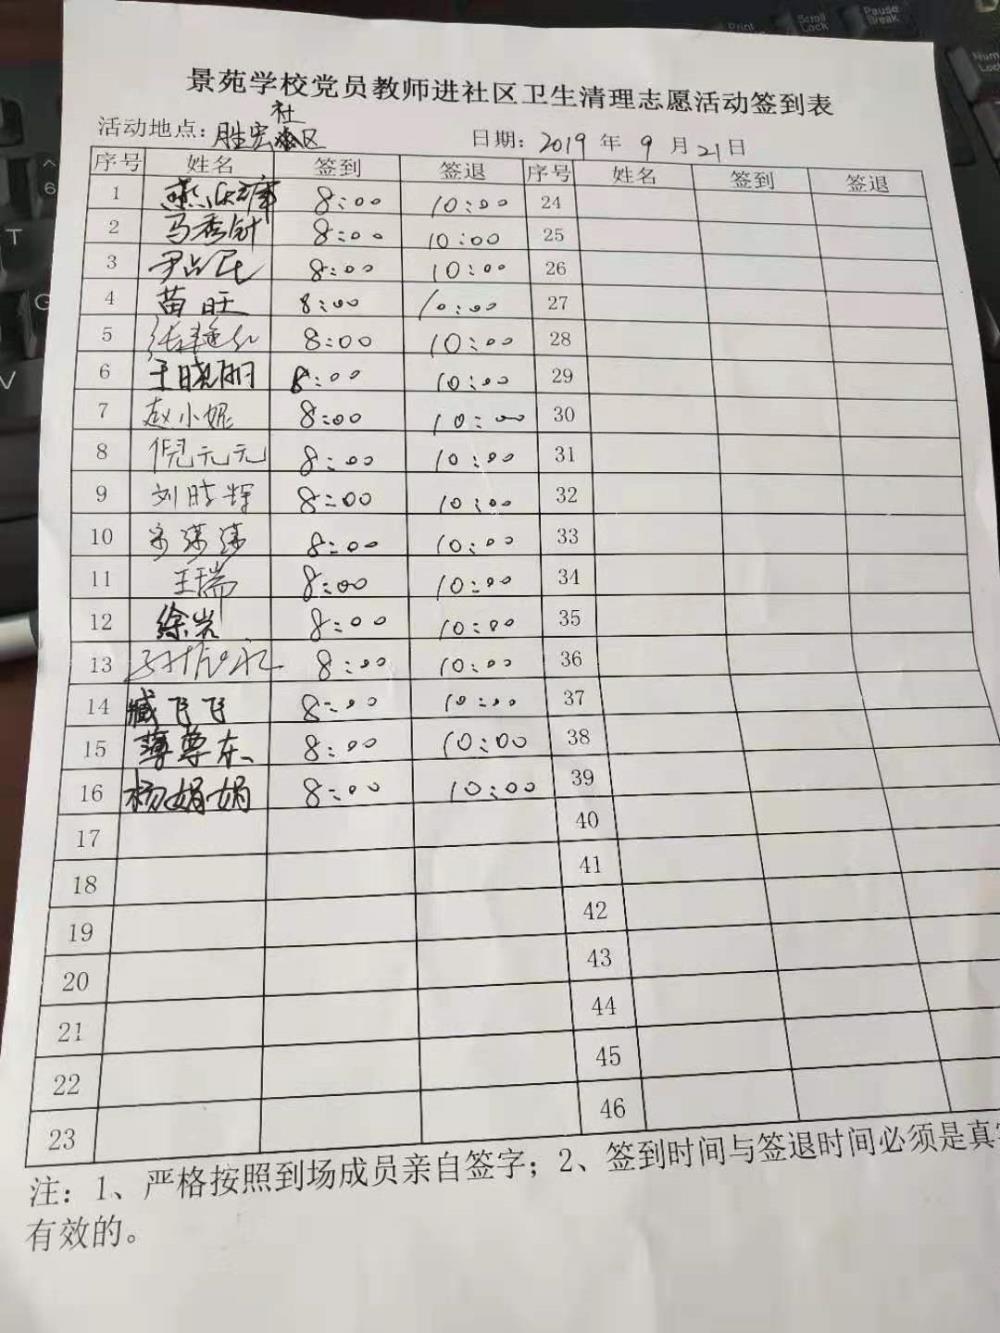 景苑学校党员教师进社区卫生清理志愿活动签到表
活动地点：胜宏社区 日期：2019 年 9 月 21 日
序号 姓名 签到 签退 序号 姓名 签到 签退
1 8:00 10:00 24
2 马秀针 8:00 10:00 25
3 8:00 10:00 26
4 苗旺 8:00 10:00 27
5 8:00 10:00 28
6 王晓丽 8:00 10:00 29
7 赵小妮 8:00 10:00 30
8 倪元元 8:00 10:00 31
9 刘晓辉 8:00 10:00 32
10 8:00 10:00 33
11 王瑞 8:00 10:00 34
12 徐岩 8:00 10:00 35
13 8:00 10:00 36
14 臧飞飞 8:00 10:00 37
15 薄尊东 8:00 10:00 38
16 杨娟娟 8:00 10:00 39
17 40
18 41
19 42
20 43
21 44
22 45
23 46
注：1、严格按照到场成员亲自签字；2、签到时间与签退时间必须是真实
有效的。
Print
Scroll Lock
Pause Break
Num Lock
^
6
T
G
V